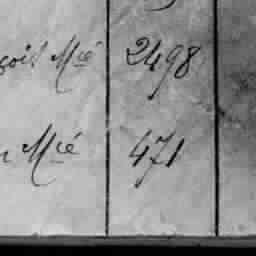 çois Mié 2498
n Mié 471